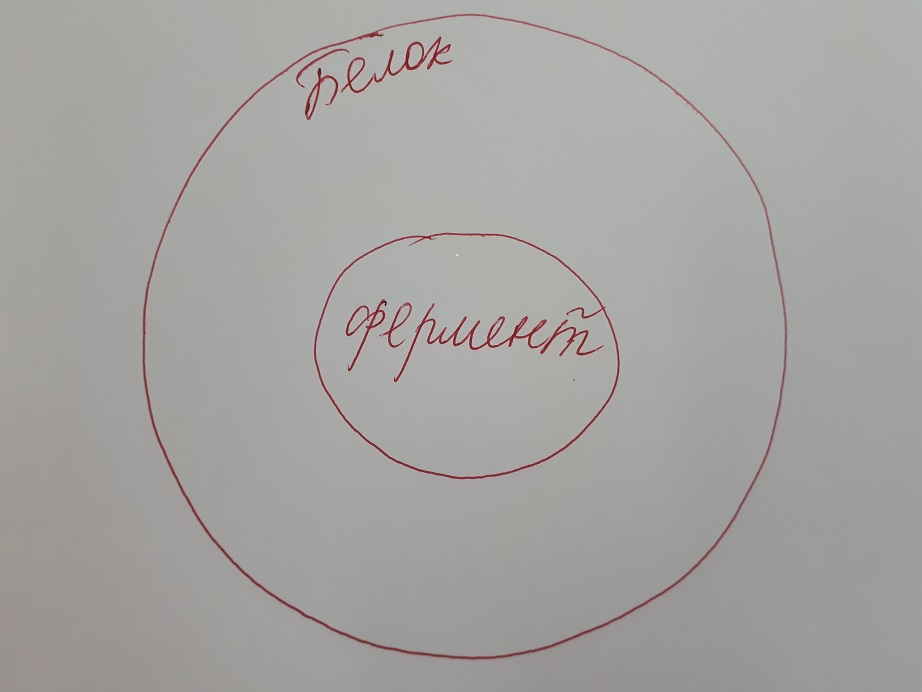 Белок
фермент